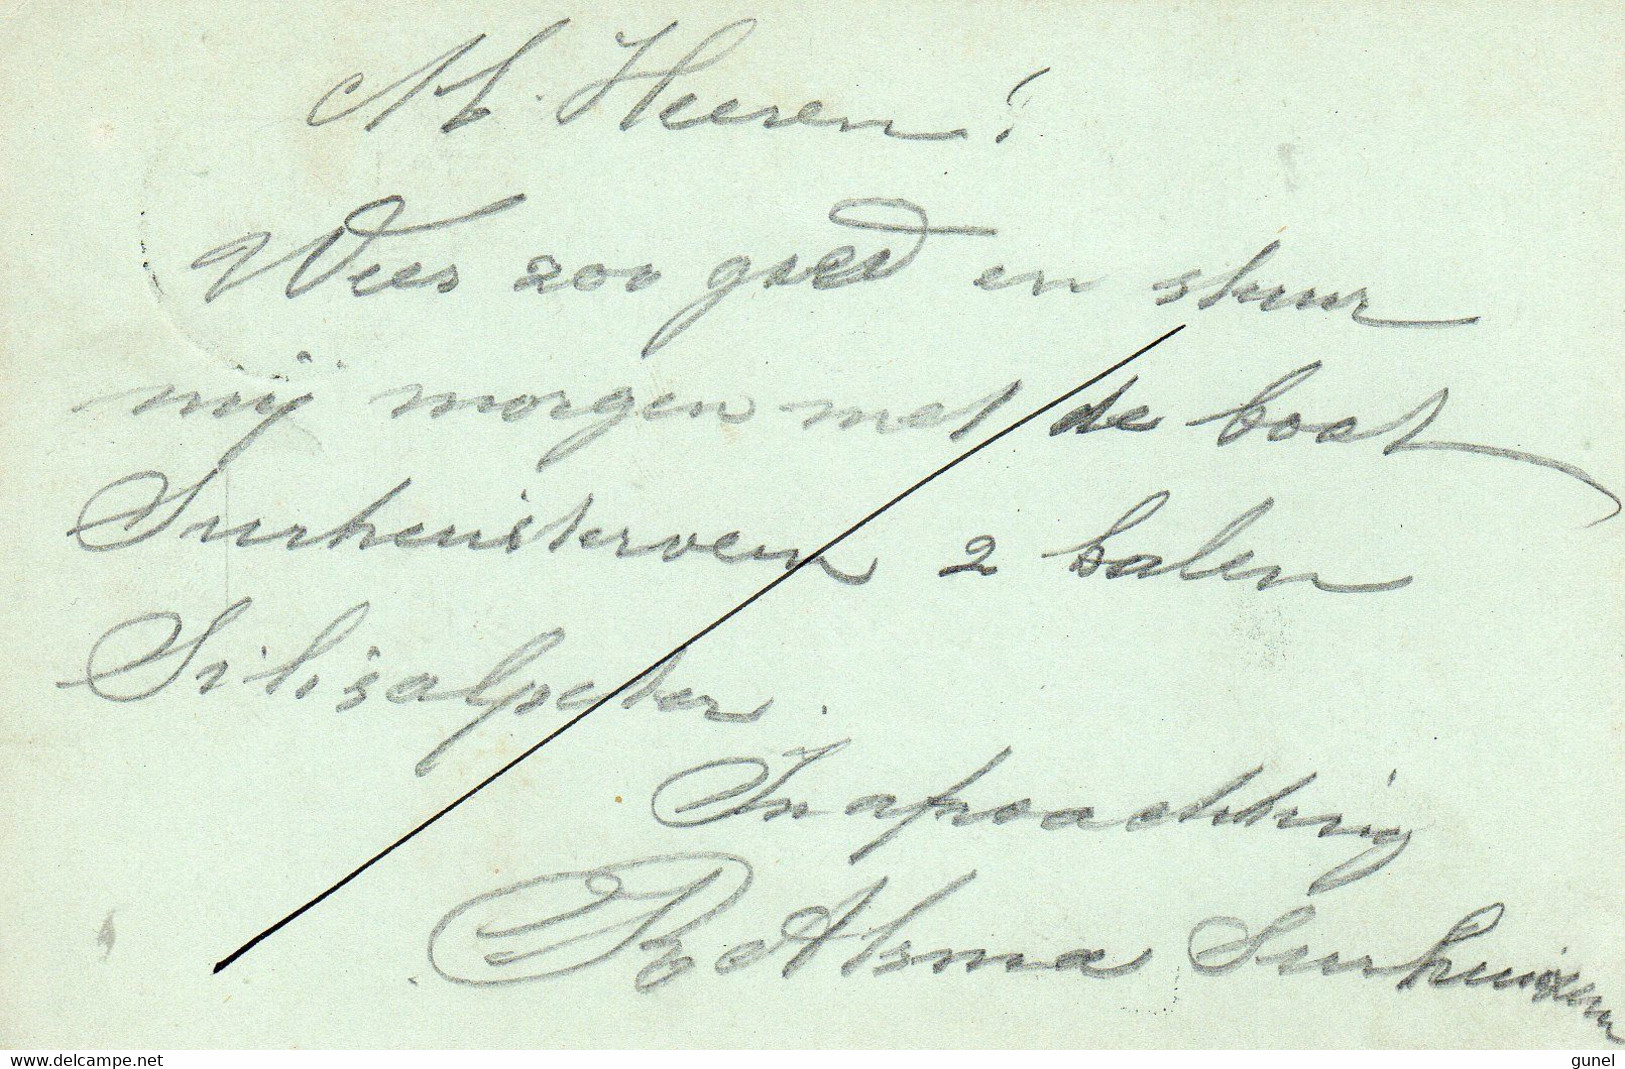 M H Heeren!
Wees zoo goed en stuur
mij morgen met de boat
Surhuisterveen 2 balen
Silisalpeter.
In afwachting
R Atsma Surhuizum
www.delcampe.net
gunel